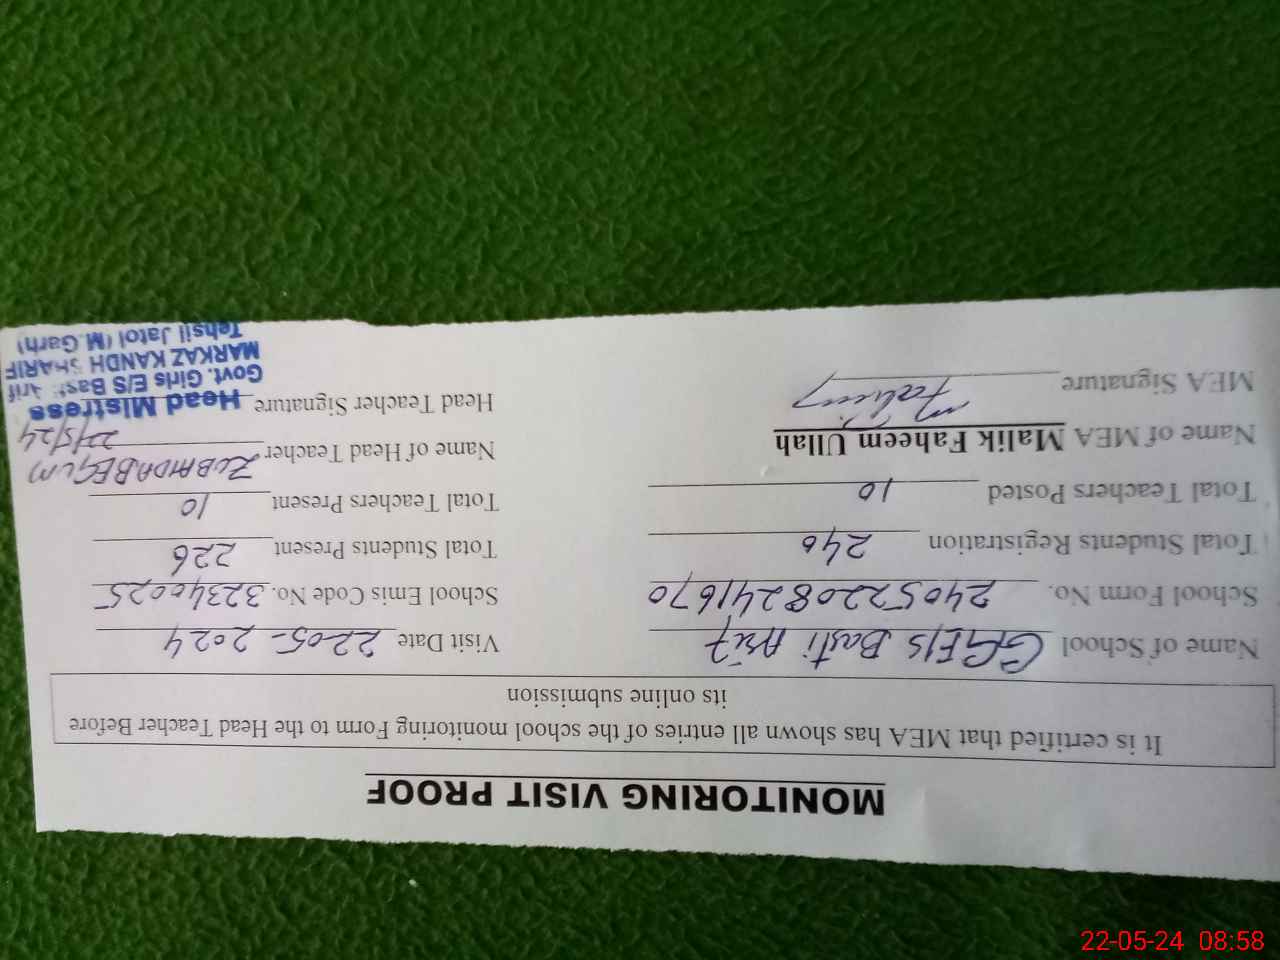 MONITORING VISIT PROOF
It is certified that MEA has shown all entries of the school monitoring Form to the Head Teacher Before
its online submission
Name of School GGE/S Basti Arif Visit Date 22-05-2024
School Form No. 24052208241670 School Emis Code No. 32340025
Total Students Registration 240 Total Students Present 226
Total Teachers Posted 10 Total Teachers Present 10
Name of MEA Malik Faheem Ullah Name of Head Teacher ZUBAIDA BEGUM
22/5/24
MEA Signature Faheem Head Teacher Signature
Head Mistress
Govt. Girls E/S Basti Arif
MARKAZ KANDH SHARIF
Tehsil Jatoi (M.Garh)
22-05-24 08:58